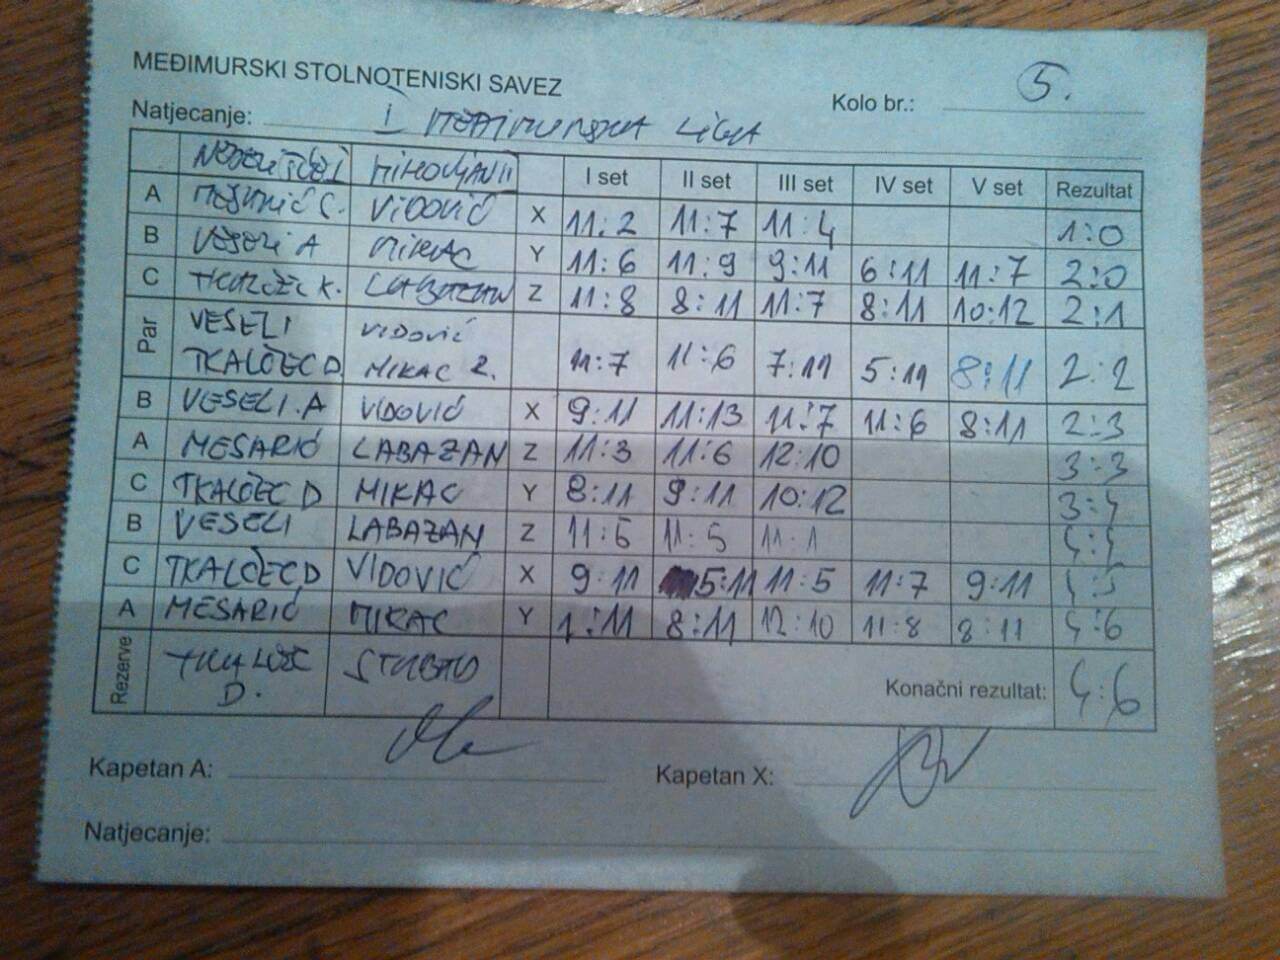 MEĐIMURSKI STOLNOTENISKI SAVEZ
Kolo br.: 5.
Natjecanje: I MEĐIMURSKA LIGA
I set II set III set IV set V set Rezultat
A MESARIĆ VIDOVIĆ X 11:2 11:7 11:4 1:0
B VESELI A MIKAC Y 11:6 11:9 9:11 6:11 11:7 2:0
C TKALČEC K. LABAZAN Z 11:8 8:11 11:7 8:11 10:12 2:1
Par VESELI VIDOVIĆ
TKALČEC D. MIKAC Z. 11:7 11:6 7:11 5:11 8:11 2:2
B VESELI.A VIDOVIĆ X 9:11 11:13 11:7 11:6 8:11 2:3
A MESARIĆ LABAZAN Z 11:3 11:6 12:10 3:3
C TKALČEC D MIKAC Y 8:11 9:11 10:12 3:4
B VESELI LABAZAN Z 11:5 11:1 4:4
C TKALČEC D VIDOVIĆ X 9:11 5:11 11:5 11:7 9:11 4:5
A MESARIĆ MIKAC Y 8:11 12:10 11:8 8:11 4:6
Rezerve TKALČEC
D.
Konačni rezultat: 4:6
Kapetan A: Kapetan X:
Natjecanje: